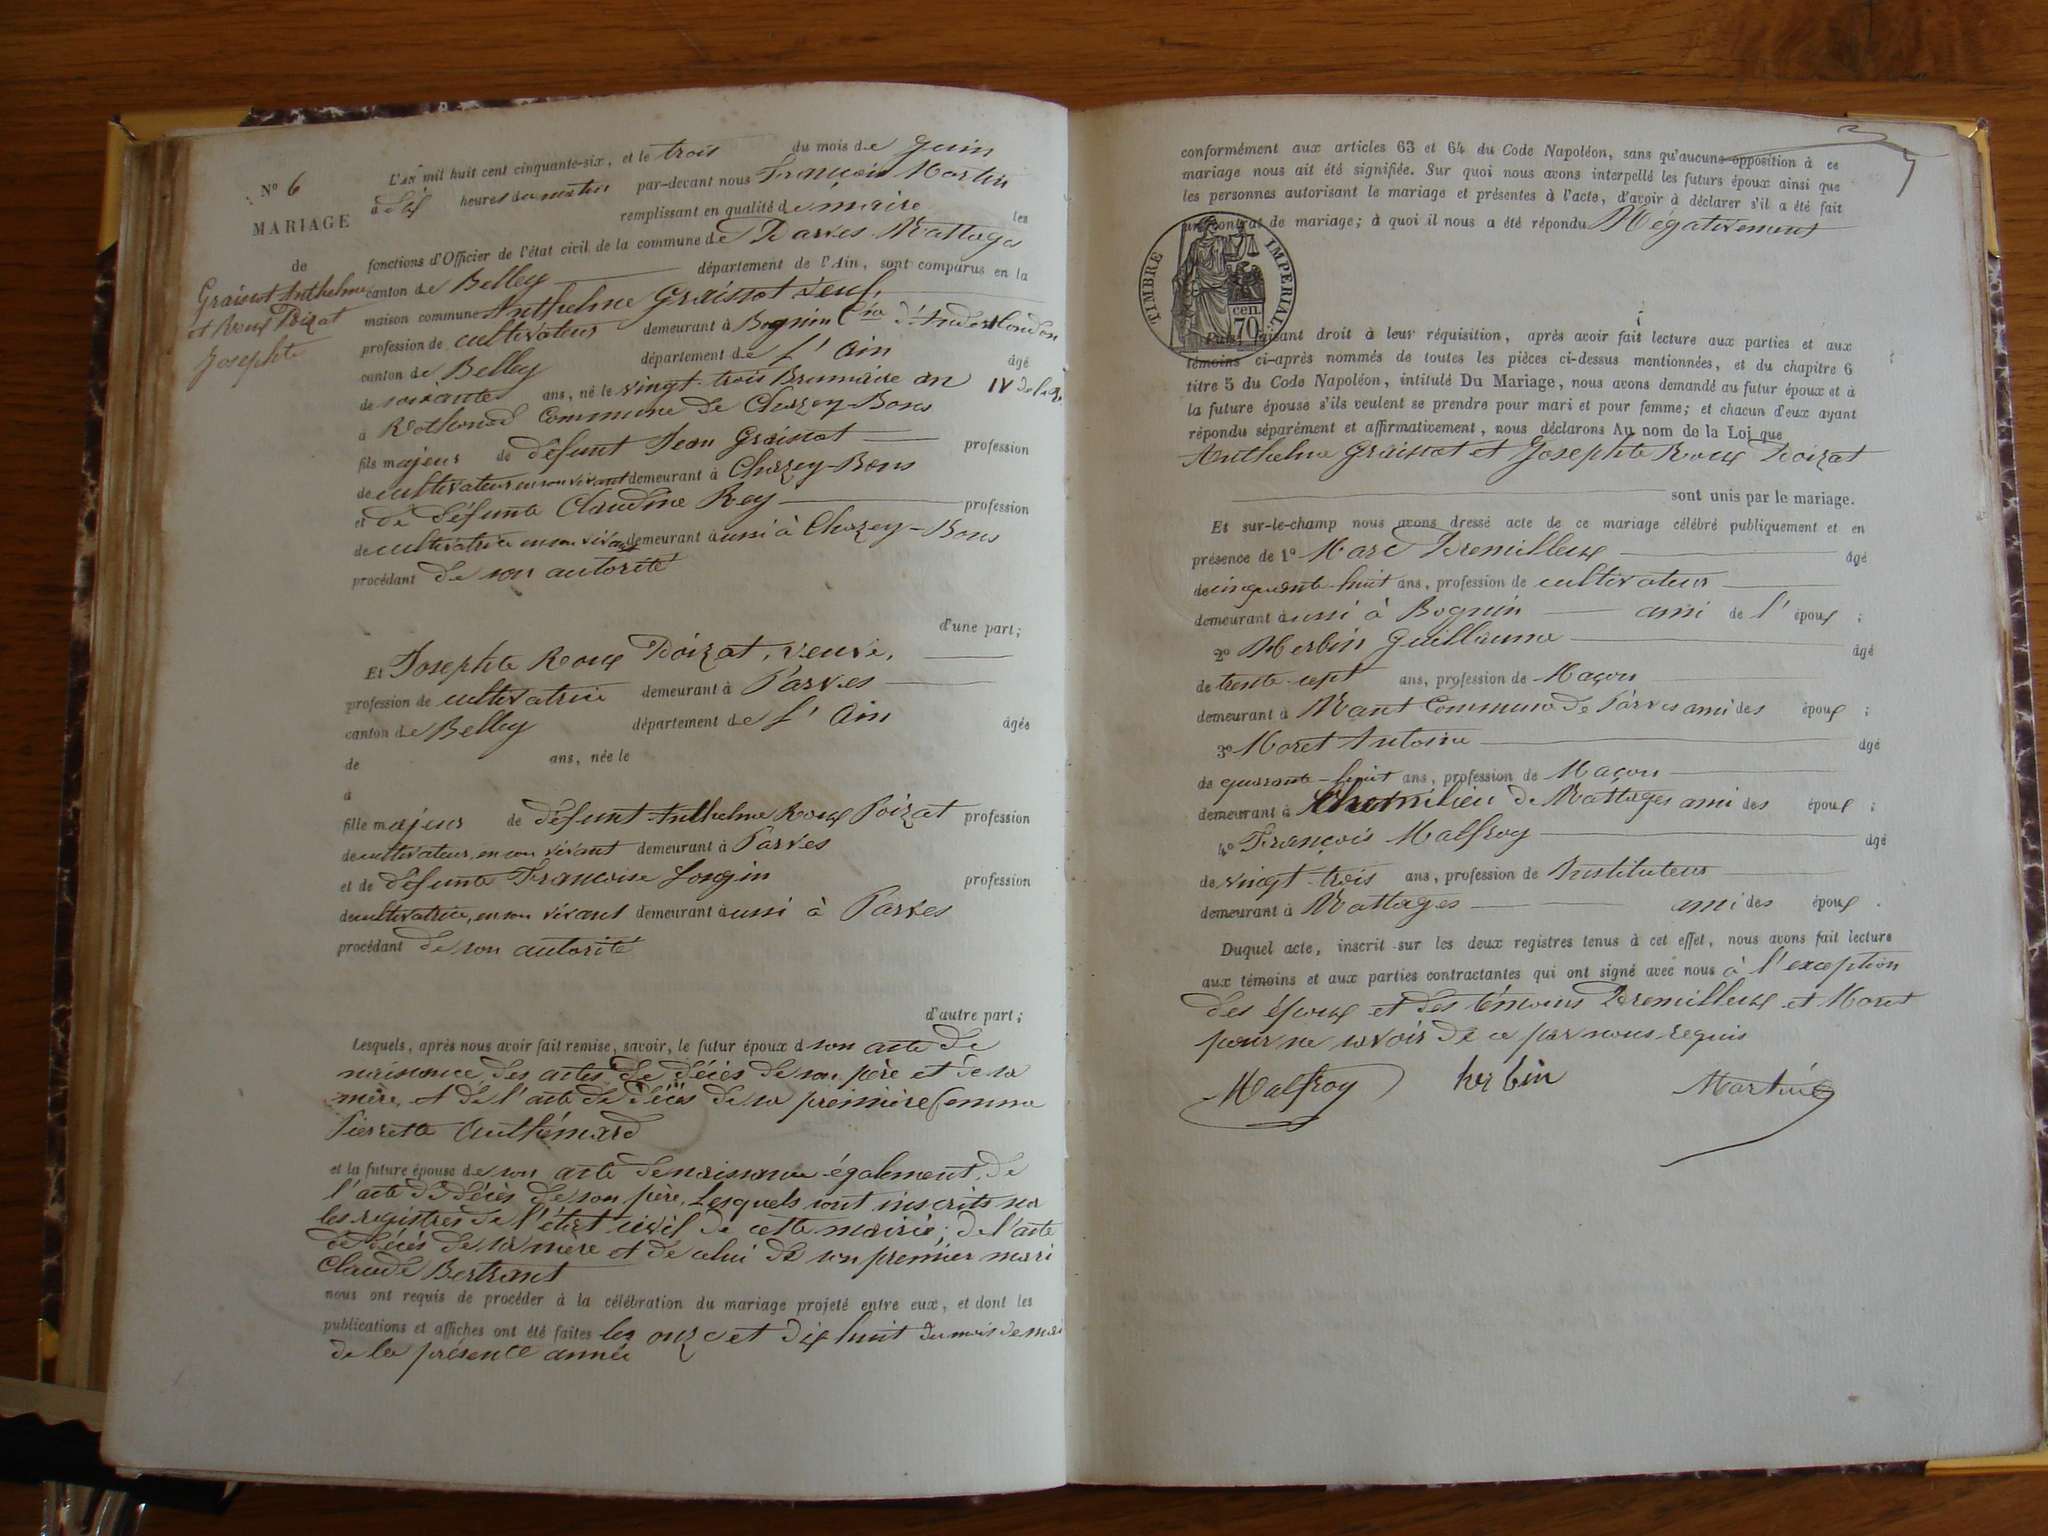 N° 6
MARIAGE
de
Graissot Anthelme
et Roux Poizat
Josephte
L'AN mil huit cent cinquante-six, et le trois du mois de Juin
à dix heures du matin par-devant nous François Martin
remplissant en qualité de maire les
fonctions d'Officier de l'état civil de la commune de Parves Nattages
canton de Belley département de l'Ain, sont comparus en la
maison commune Anthelme Graissot veuf,
profession de cultivateur demeurant à Bognin
canton de Belley département de L'Ain âgé
de soixante ans, né le vingt-trois Brumaire an IV de la R.
à Rothonod Commune de Chazey-Bons
fils majeur de défunt Jean Graissot profession
de cultivateur en son vivant demeurant à Chazey-Bons
et de défunte Claudine Rey profession
de cultivatrice en son vivant demeurant aussi à Chazey-Bons
procédant de son autorité
d'une part;
Et Josephte Roux Poizat, veuve,
profession de cultivatrice demeurant à Parves
canton de Belley département de L'Ain âgée
de ans, née le
à
fille majeur de défunt Anthelme Roux Poizat profession
de cultivateur, en son vivant demeurant à Parves
et de défunte Françoise Longin profession
de cultivatrice, en son vivant demeurant aussi à Parves
procédant de son autorité
d'autre part;
Lesquels, après nous avoir fait remise, savoir, le futur époux d son acte de
naissance, des actes de décès de son père et de sa
mère, et de l'acte de décès de sa première femme
Pierrette Anthémard
et la future épouse de son acte de naissance également, de
l'acte de décès de son père, Lesquels sont inscrits sur
les registres de l'état civil de cette mairie; de l'acte
de décès de sa mère et de celui de son premier mari
Claude Bertrant
nous ont requis de procéder à la célébration du mariage projeté entre eux, et dont les
publications et affiches ont été faites les onze et dix huit du mois de mai
de la présente année
conformément aux articles 63 et 64 du Code Napoléon, sans qu'aucune opposition à ce
mariage nous ait été signifiée. Sur quoi nous avons interpellé les futurs époux ainsi que
les personnes autorisant le mariage et présentes à l'acte, d'avoir à déclarer s'il a été fait
un contrat de mariage; à quoi il nous a été répondu Négativement
TIMBRE IMPERIAL
70 cen.
Puis, faisant droit à leur réquisition, après avoir fait lecture aux parties et aux
témoins ci-après nommés de toutes les pièces ci-dessus mentionnées, et du chapitre 6
titre 5 du Code Napoléon, intitulé Du Mariage, nous avons demandé au futur époux et à
la future épouse s'ils veulent se prendre pour mari et pour femme; et chacun d'eux ayant
répondu séparément et affirmativement, nous déclarons Au nom de la Loi que
Anthelme Graissot et Josephte Roux Poizat
sont unis par le mariage.
Et sur-le-champ nous avons dressé acte de ce mariage célébré publiquement et en
présence de 1° Marc Dremilleux âgé
de cinquante-huit ans, profession de cultivateur
demeurant aussi à Bognin ami de l' époux;
2° Herbin Guillaume âgé
de trente-sept ans, profession de Maçon
demeurant à Nant Commune de Parves ami des époux;
3° Moret Antoine âgé
de quarante-huit ans, profession de Maçon
demeurant à de Nattages ami des époux;
4° François Malfroy âgé
de vingt-trois ans, profession de Instituteur
demeurant à Nattages ami des époux.
Duquel acte, inscrit sur les deux registres tenus à cet effet, nous avons fait lecture
aux témoins et aux parties contractantes qui ont signé avec nous à l'exception
des époux et des témoins Dremilleux et Moret
pour ne savoir de ce par nous requis
Malfroy herbin Martin